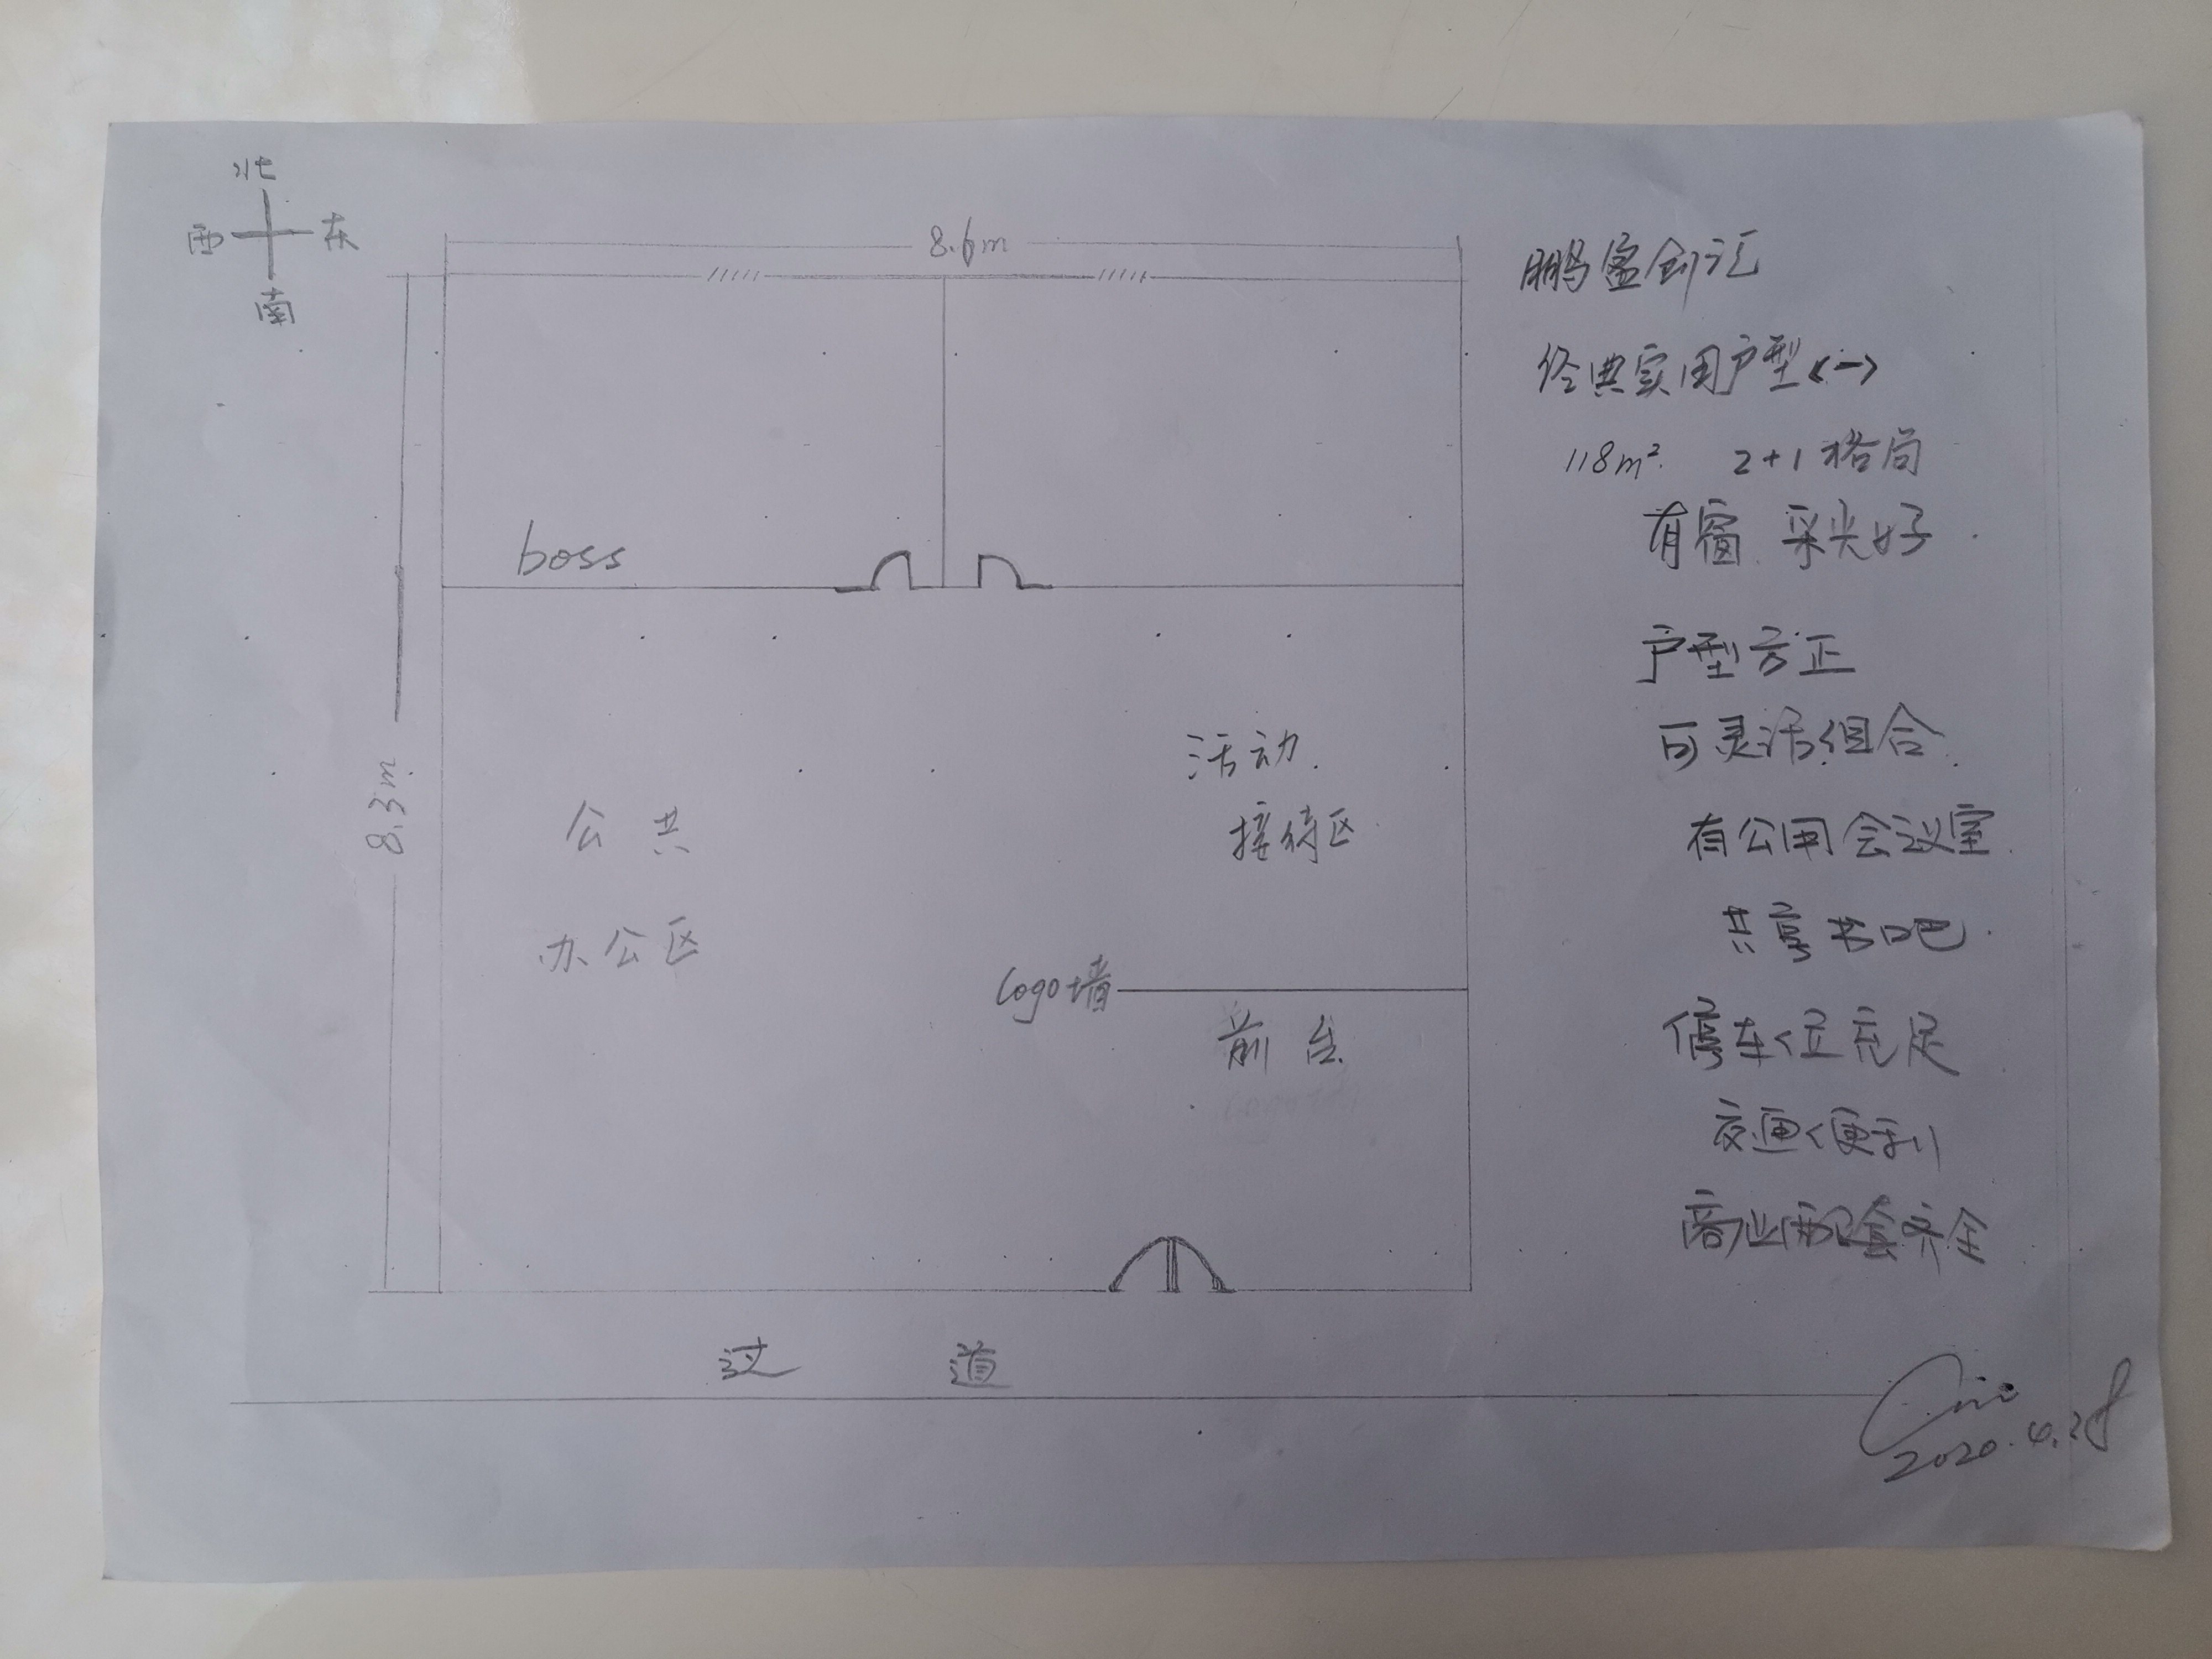 北
西 东
南
8.6m
8.3m
boss
公共
办公区
活动
接待区
logo墙
前台
过道
鹏盛创汇
经典实用户型<一>
118m² 2+1格局
有窗 采光好
户型方正
可灵活组合
有公用会议室
共享书吧
停车位充足
交通便利
商业配套齐全
2020.4.28